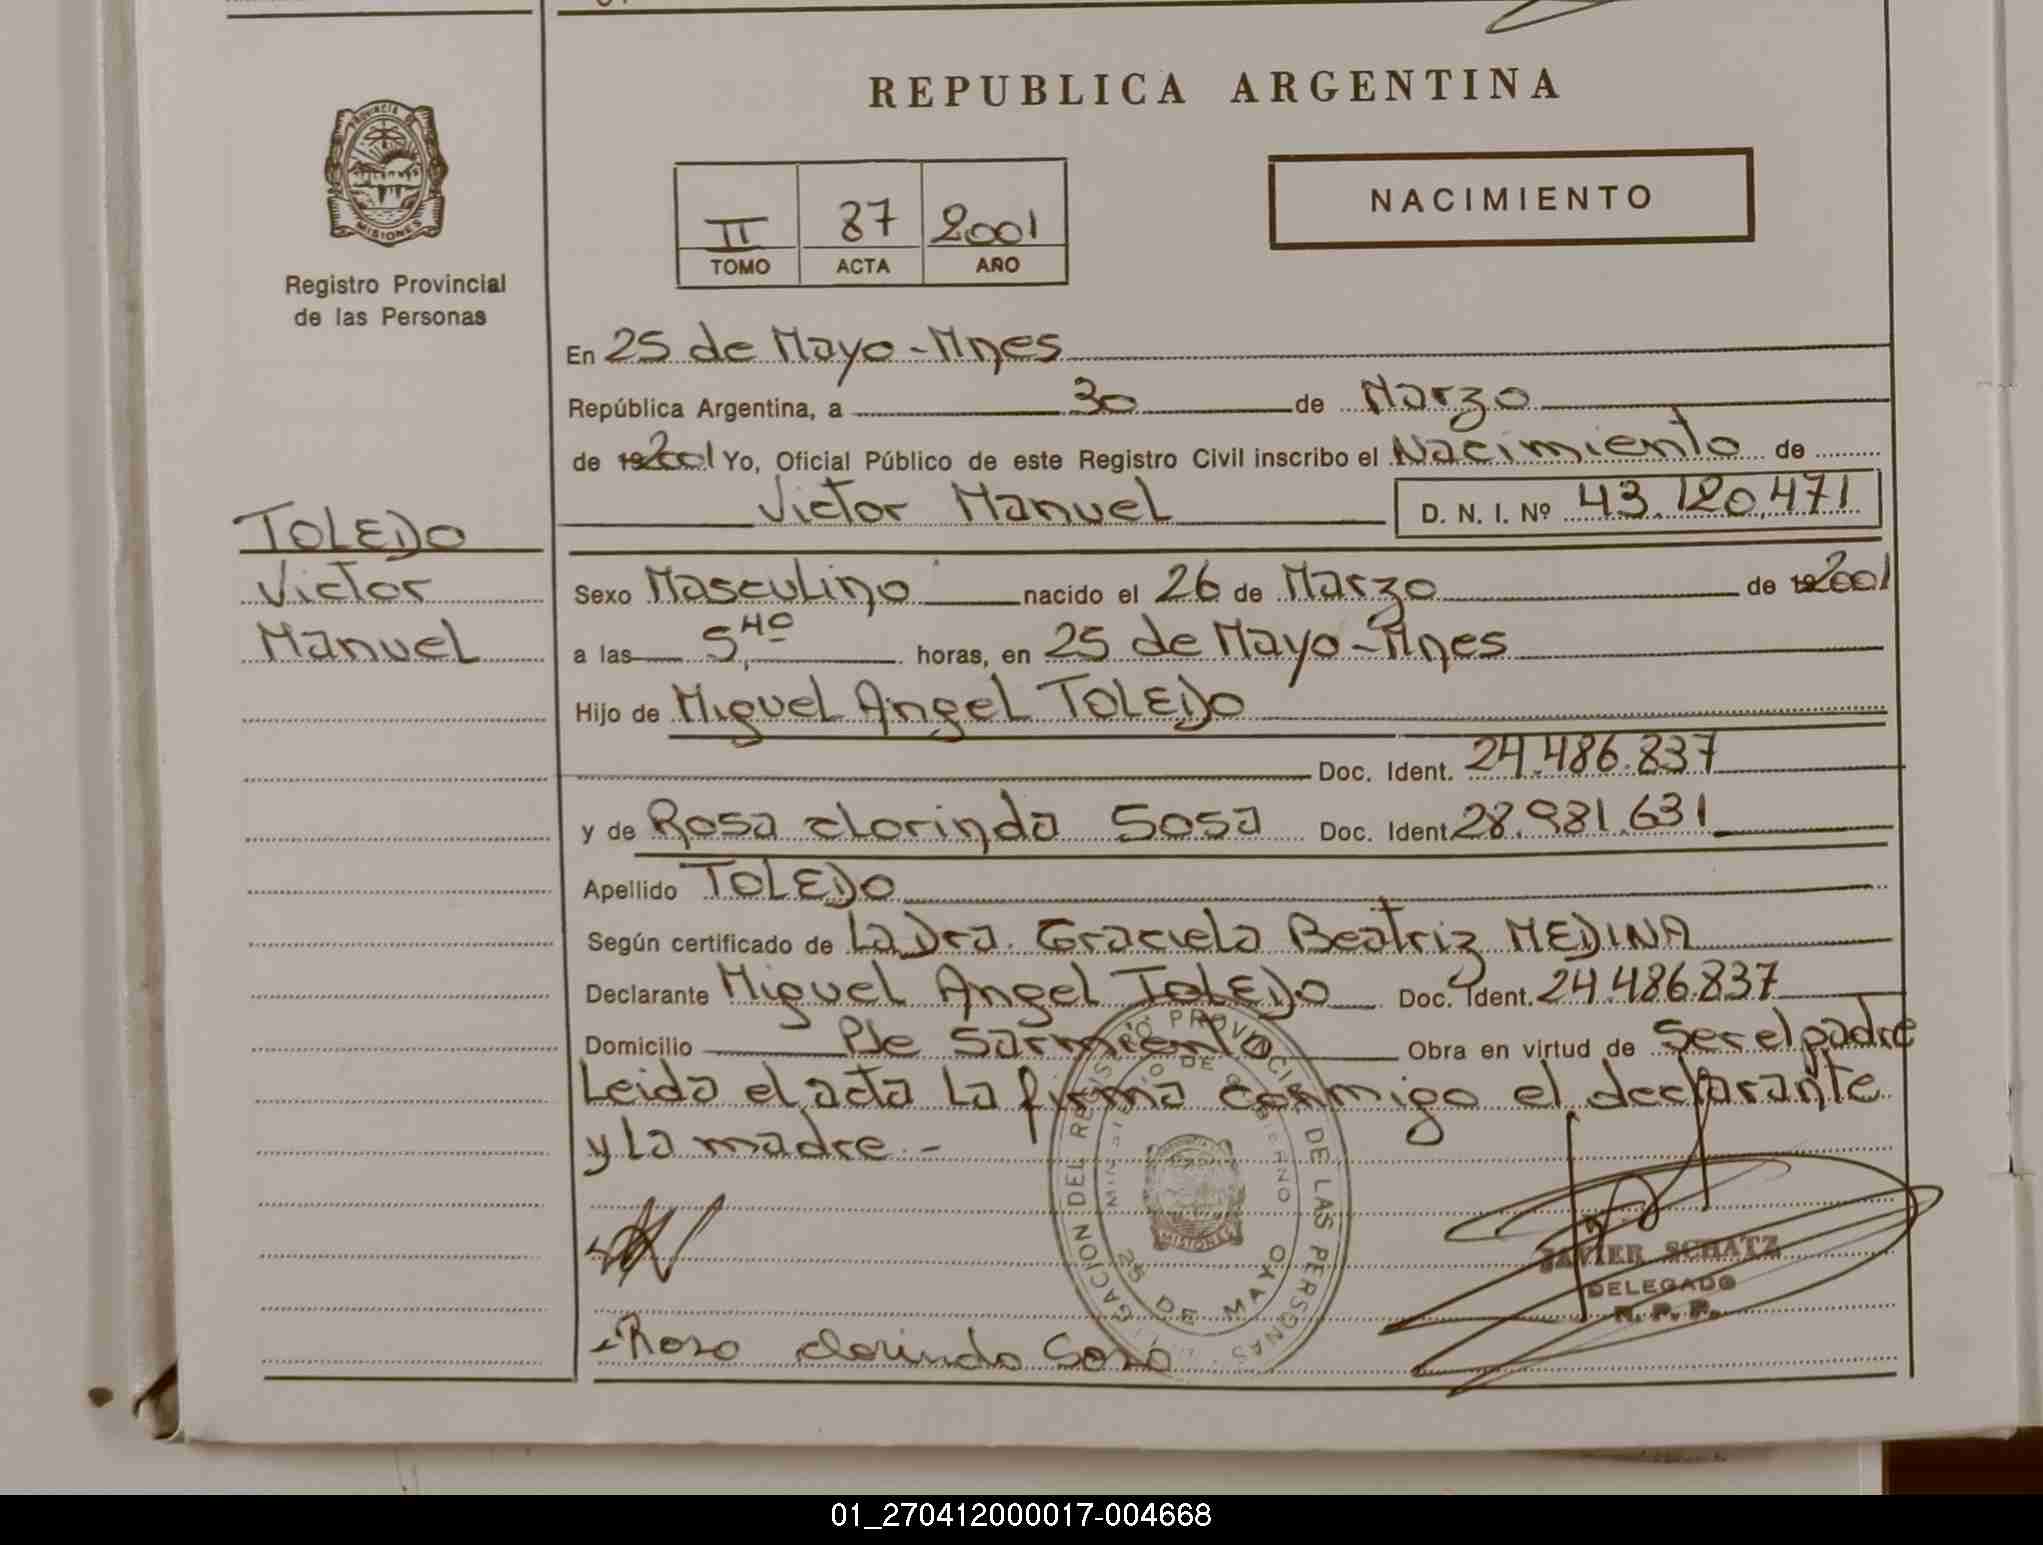 REPUBLICA ARGENTINA
PROVINCIA DE
MISIONES
Registro Provincial
de las Personas
II 87 2001
TOMO ACTA AÑO
NACIMIENTO
En 25 de Mayo - Mnes
República Argentina, a 30 de Marzo
de 192001 Yo, Oficial Público de este Registro Civil inscribo el Nacimiento de
Victor Manuel D. N. I. Nº 43.120.471
TOLEDO
Victor
Manuel
Sexo Masculino nacido el 26 de Marzo de 192001
a las 5,40 horas, en 25 de Mayo - Mnes
Hijo de Miguel Angel TOLEDO
Doc. Ident. 24.486.837
y de Rosa Clorinda Sosa Doc. Ident. 28.981.631
Apellido TOLEDO
Según certificado de La Dra. Graciela Beatriz MEDINA
Declarante Miguel Angel TOLEDO Doc. Ident. 24.486.837
Domicilio Pje Sarmiento Obra en virtud de Ser el padre
Leida el acta La firma conmigo el declarante
y La madre. -
DEL REGISTRO PROVINCIAL DE LAS PERSONAS
MINISTERIO DE GOBIERNO
MISIONES
25 DE MAYO
JAVIER SCHATZ
DELEGADO
R. P. P.
Rosa Clorinda Sosa
01_270412000017-004668